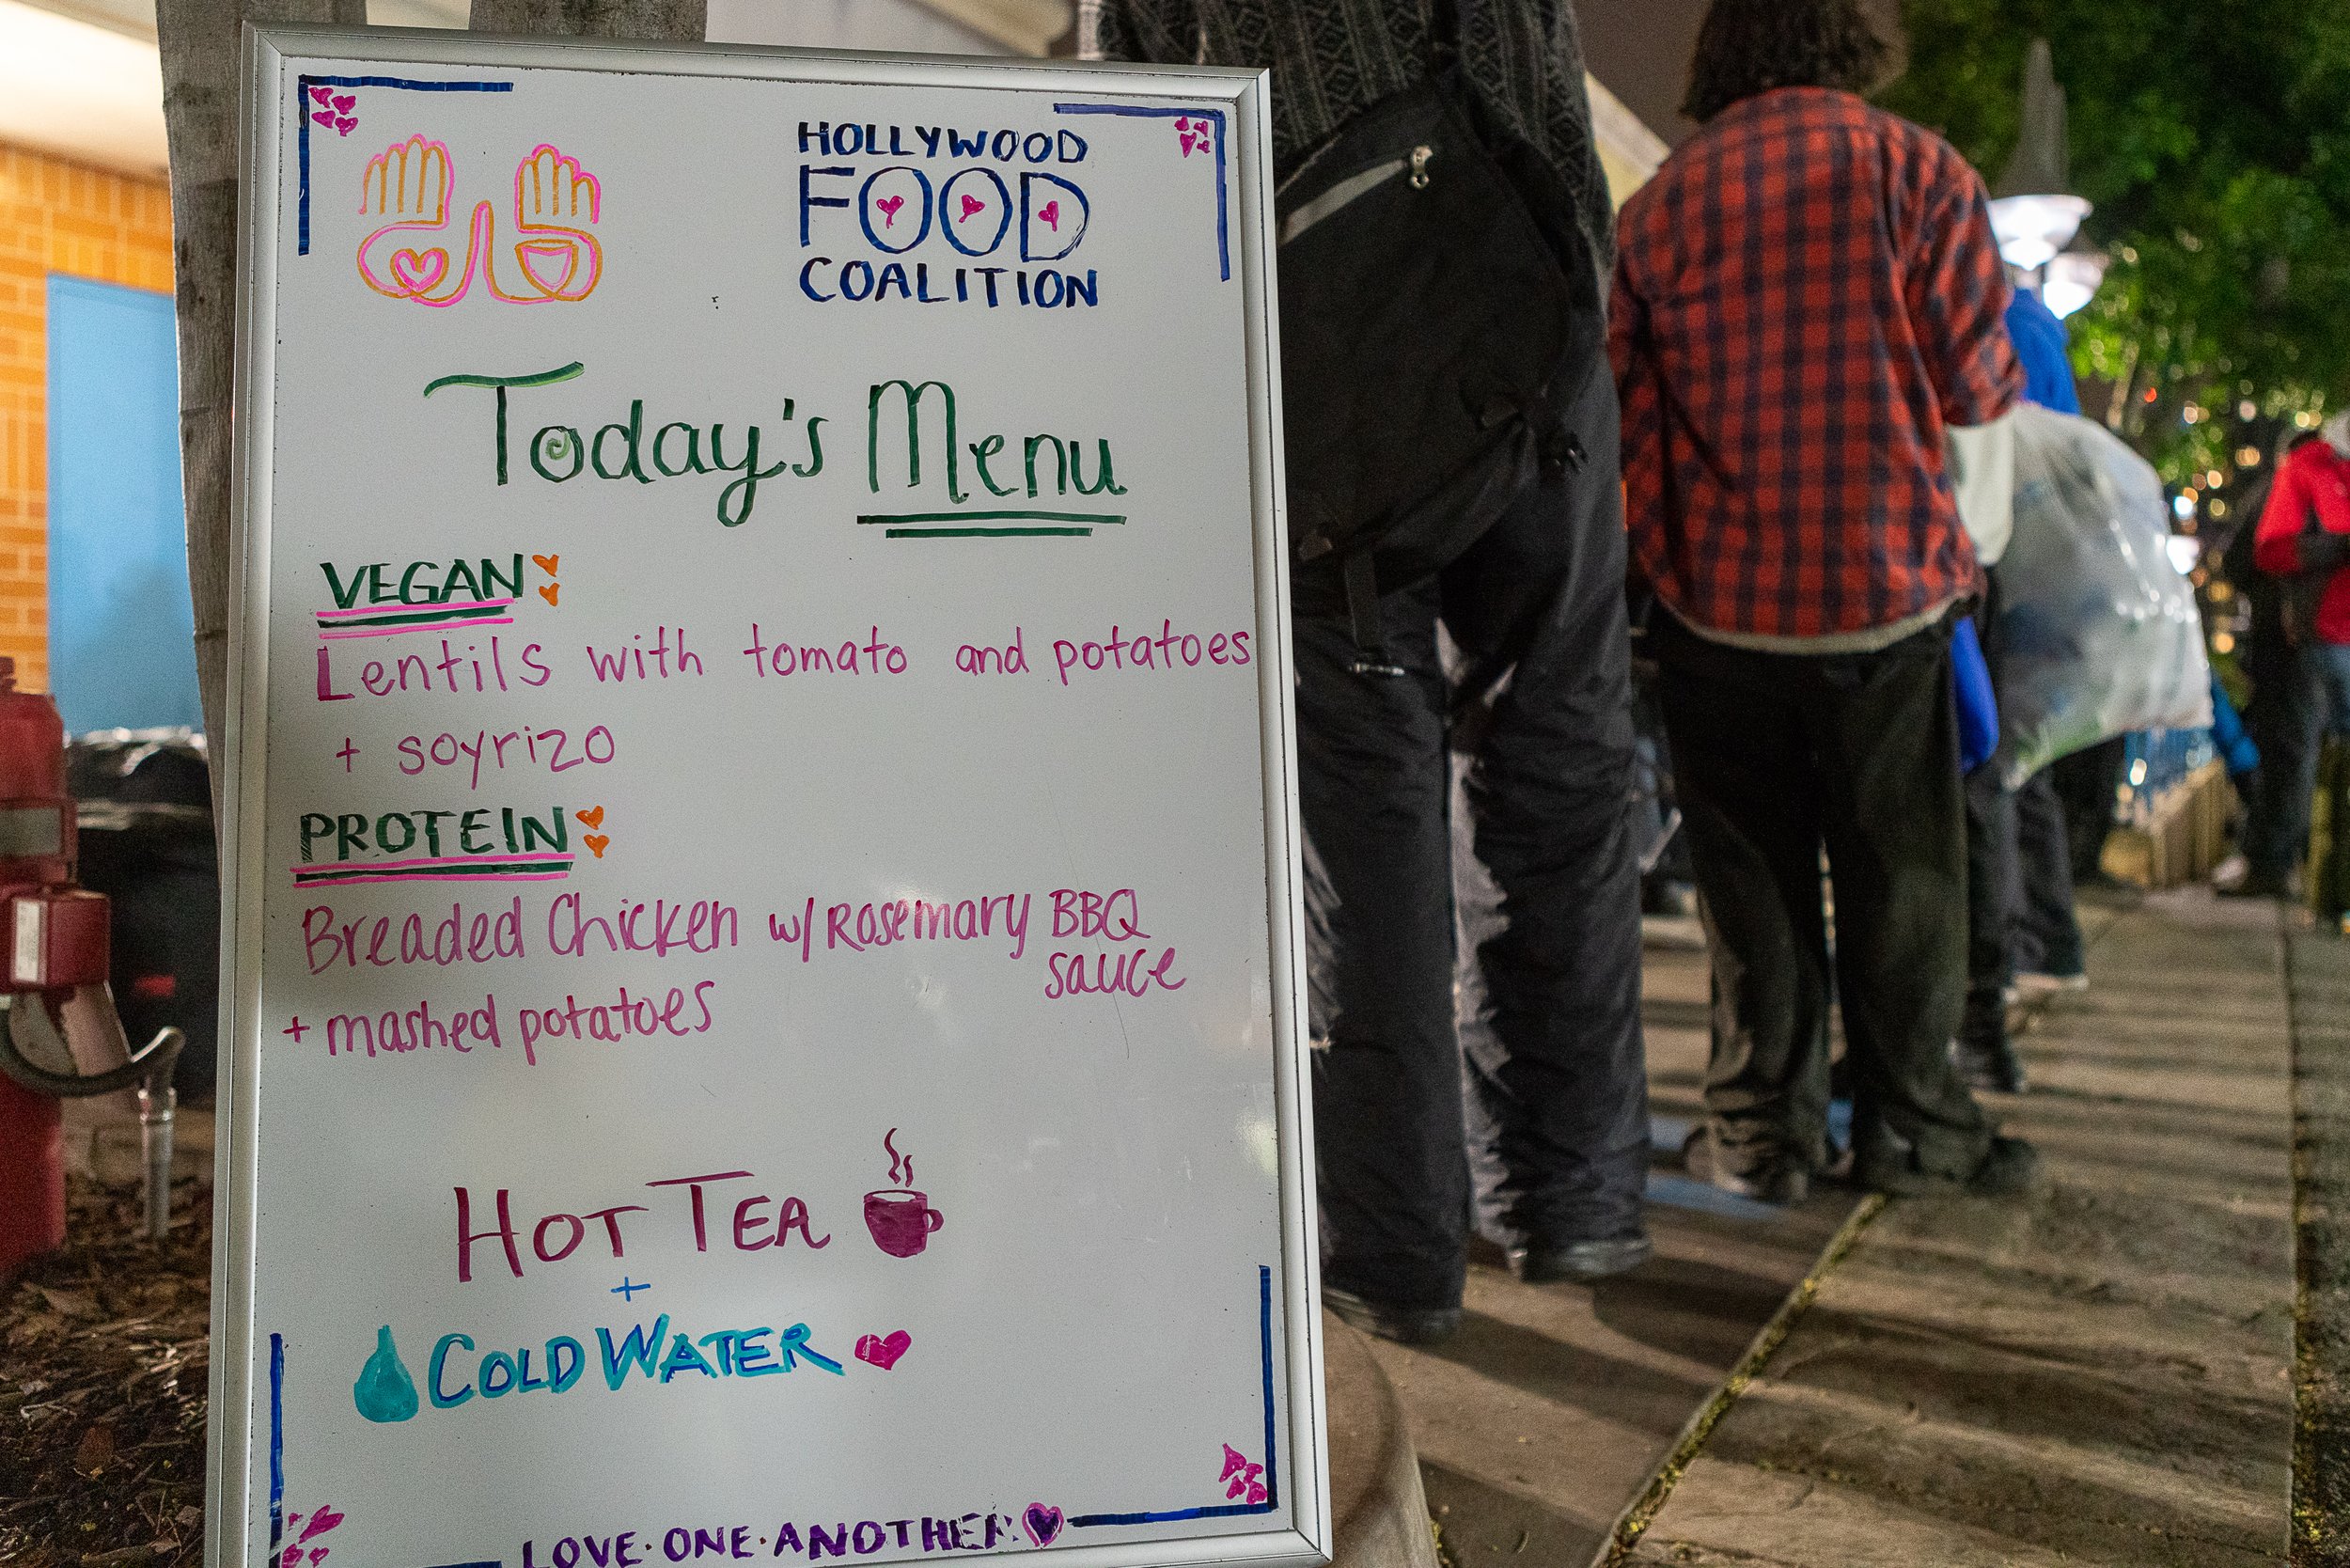 HOLLYWOOD
FOOD
COALITION
Today's Menu
VEGAN
Lentils with tomato and potatoes
+ soyrizo
PROTEIN
Breaded Chicken w/ Rosemary BBQ
sauce
+ mashed potatoes
HOT TEA
+
COLD WATER
LOVE·ONE·ANOTHER